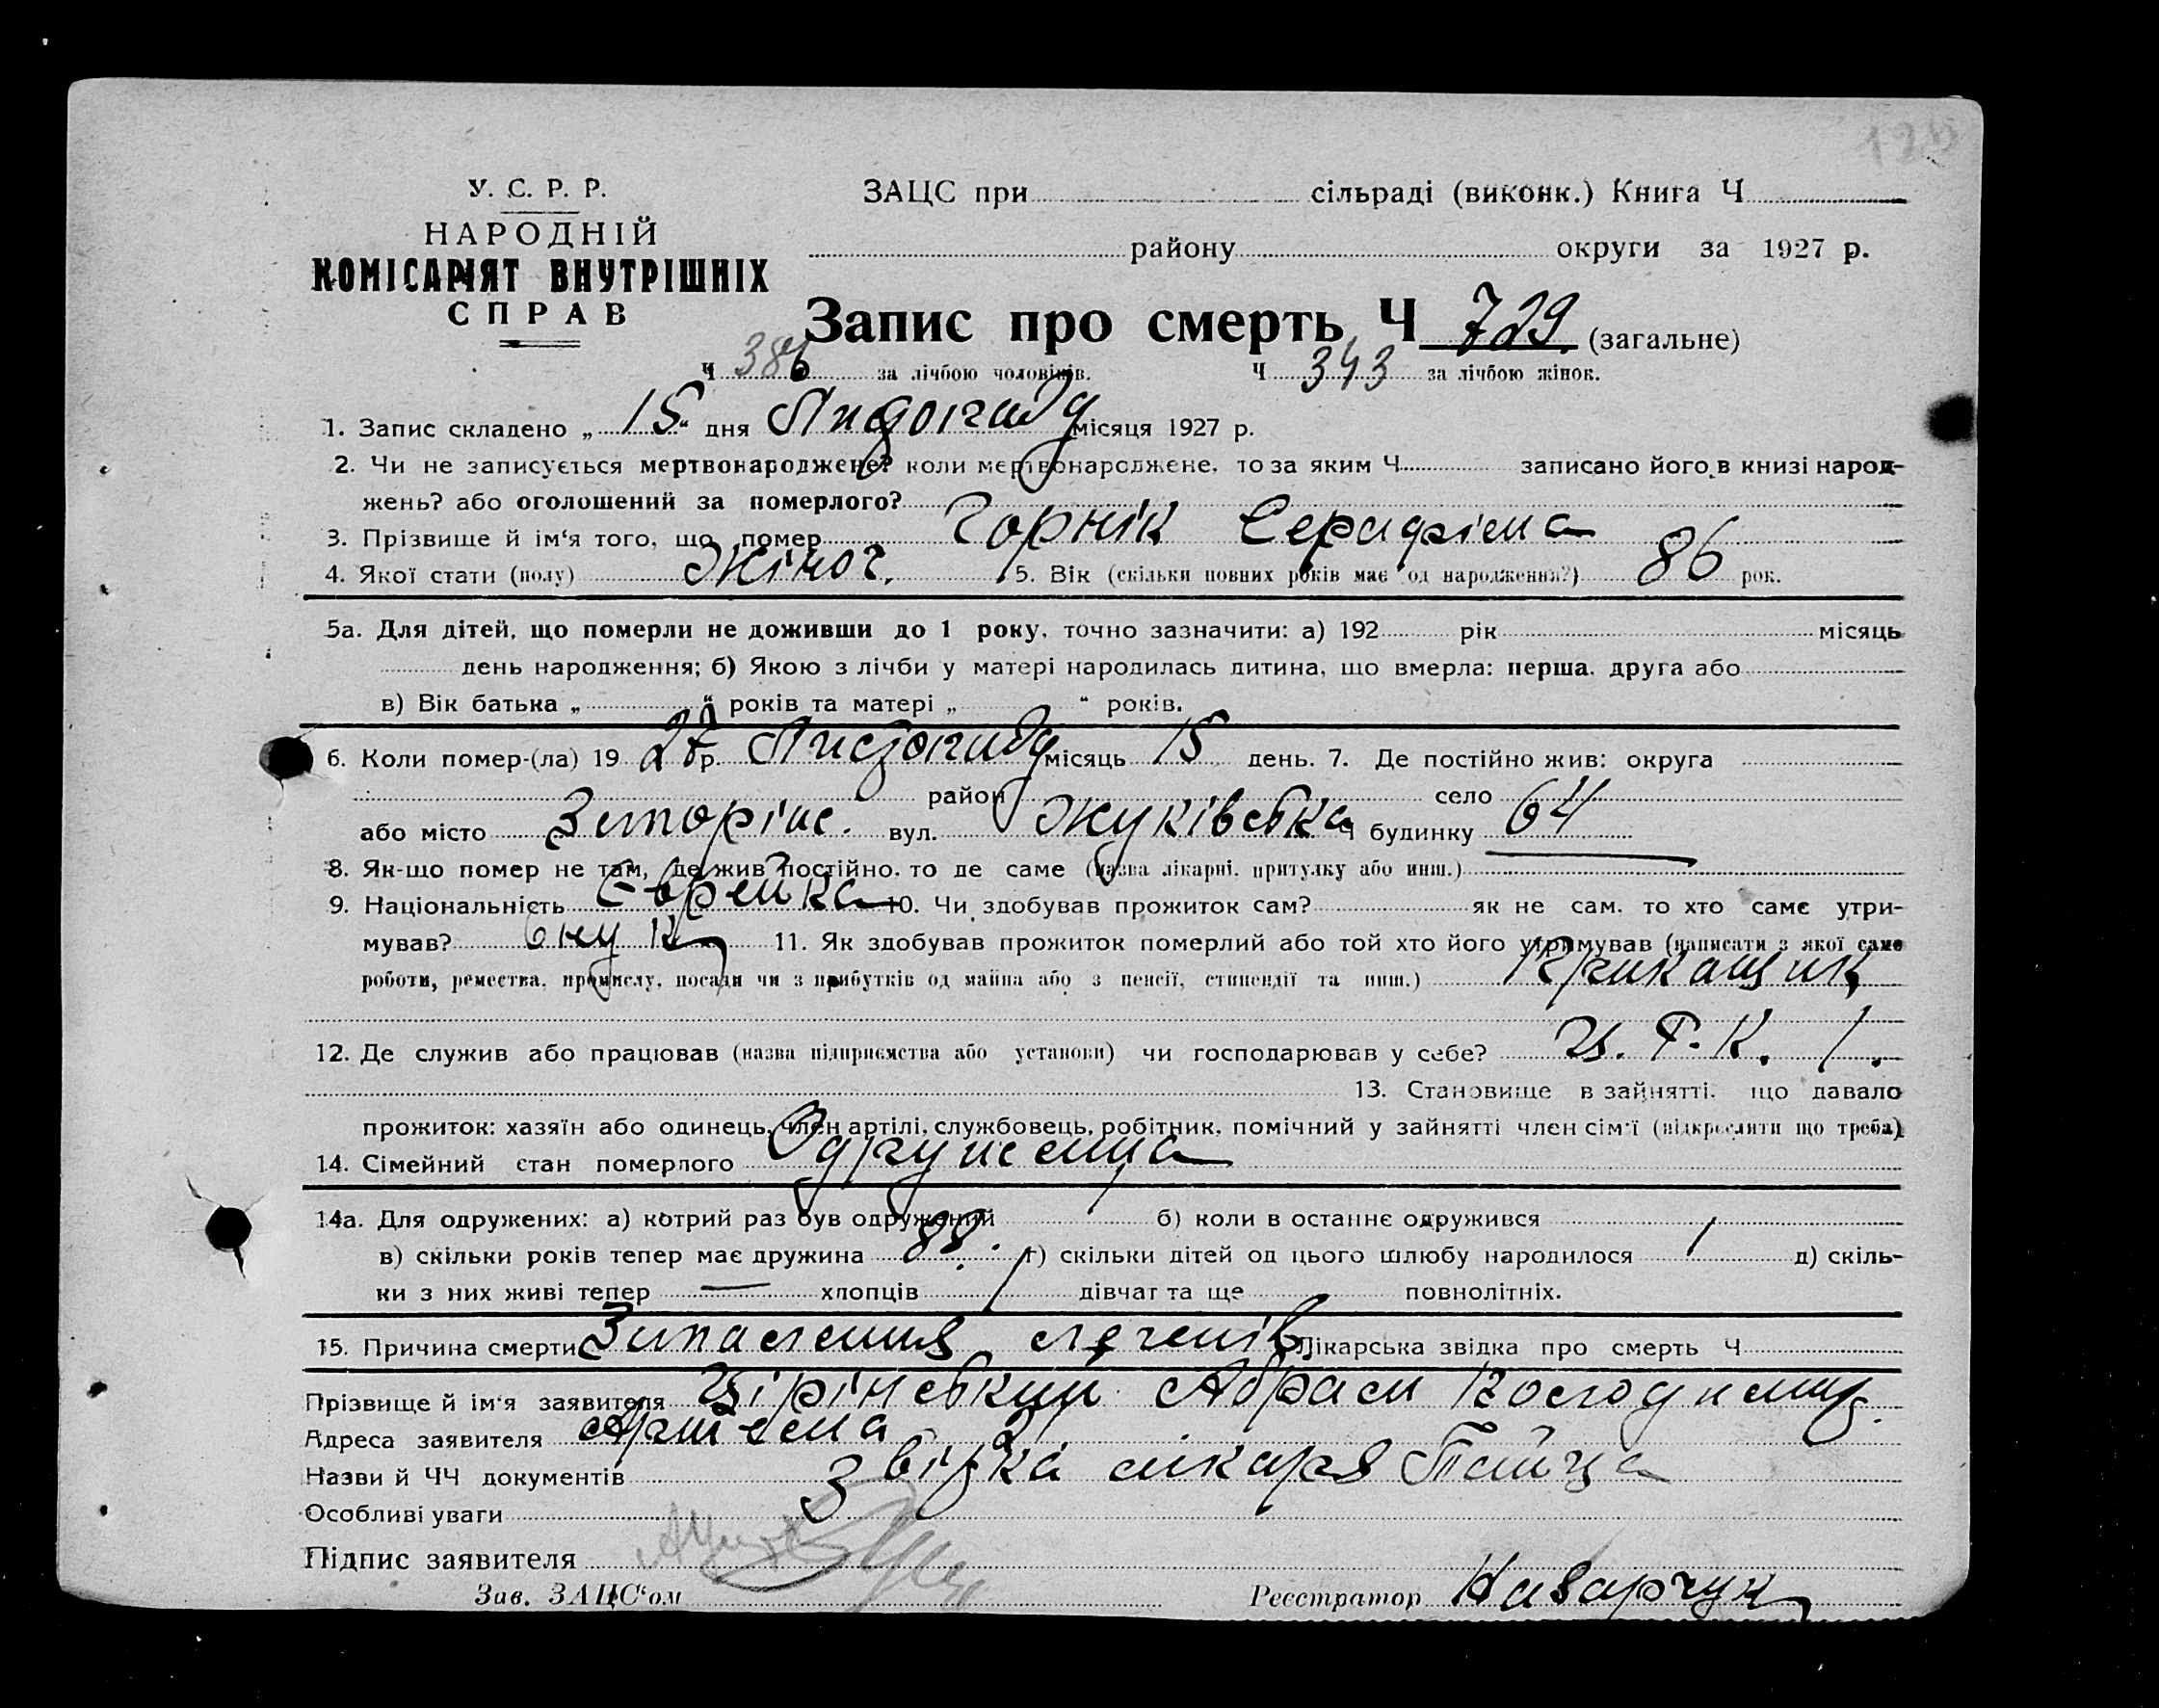 У. С. Р. Р.
НАРОДНІЙ
КОМІСАРІЯТ ВНУТРІШНІХ
СПРАВ
ЗАЦС при сільраді (виконк.) Книга Ч
району округи за 1927 р.
Запис про смерть Ч 729. (загальне)
Ч 386 за лічбою чоловіків. Ч 343 за лічбою жінок.
1. Запис складено „ 15 “ дня Листопаду місяця 1927 р.
2. Чи не записується мертвонароджене? коли мертвонароджене, то за яким Ч записано його в книзі народ-
жень? або оголошений за померлого?
3. Прізвище й ім‘я того, що помер Горнік Серафіма
4. Якої стати (полу) Жіноч. 5. Вік (скільки повних років має од народження?) 86 рок.
5а. Для дітей, що померли не доживши до 1 року, точно зазначити: а) 192 рік місяць
день народження; б) Якою з лічби у матері народилась дитина, що вмерла: перша, друга або
в) Вік батька „ “ років та матері „ “ років.
6. Коли помер-(ла) 19 27 р. Листопаду місяць 15 день. 7. Де постійно жив: округа
район село
або місто вул. Жуківська Ч будинку 64
8. Як-що помер не там, де жив постійно, то де саме (назва лікарні, притулку або инш.)
9. Національність Єврейка 10. Чи здобував прожиток сам? як не сам, то хто саме утри-
мував? Онук 11. Як здобував прожиток померлий або той хто його утримував (написати з якої саме
роботи, ремества, промислу, посади чи з прибутків од майна або з пенсії, стипендії та инш.) Прикащик
12. Де служив або працював (назва підприємства або установи) чи господарював у себе? Ц. Р. К. 1.
13. Становище в зайнятті, що давало
прожиток: хазяїн або одинець, член артілі, службовець, робітник, помічний у зайнятті член сім‘ї (підкреслити що треба)
14. Сімейний стан померлого Одружена
14а. Для одружених: а) котрий раз був одружений 1 б) коли в останнє одружився
в) скільки років тепер має дружина 88. г) скільки дітей од цього шлюбу народилося 1 д) скіль-
ки з них живі тепер — хлопців 1 дівчат та ще повнолітніх.
15. Причина смерти Запалення легенів Лікарська звідка про смерть Ч
Прізвище й ім‘я заявителя Абрам
Адреса заявителя Артема
Назви й ЧЧ документів Звідка лікаря
Особливі уваги
Підпис заявителя
Зав. ЗАЦС‘ом Реєстратор Назарчук